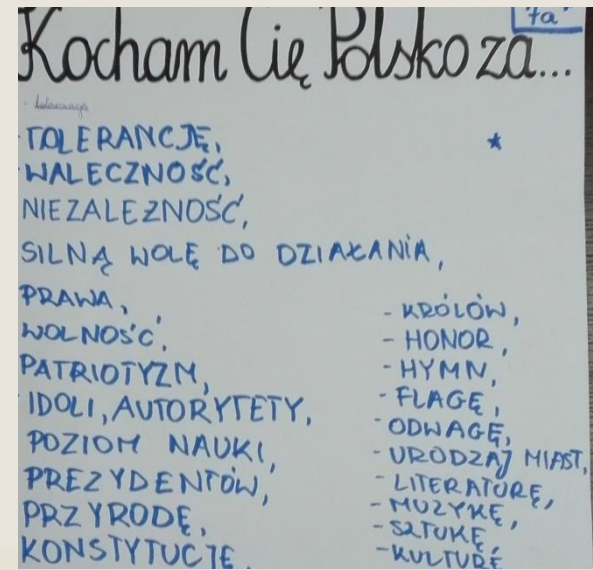 7a
Kocham Cię Polsko za...
- tolerancję
TOLERANCJĘ,
WALECZNOŚĆ,
NIEZALEŻNOŚĆ,
SILNĄ WOLĘ DO DZIAŁANIA,
PRAWA,
WOLNOŚĆ,
PATRIOTYZM,
IDOLI, AUTORYTETY,
POZIOM NAUKI,
PREZYDENTÓW,
PRZYRODĘ,
KONSTYTUCJĘ
- KRÓLÓW,
- HONOR,
- HYMN,
- FLAGĘ,
- ODWAGĘ,
- URODZAJ MIAST,
- LITERATURĘ,
- MUZYKĘ,
- SZTUKĘ,
- KULTURĘ